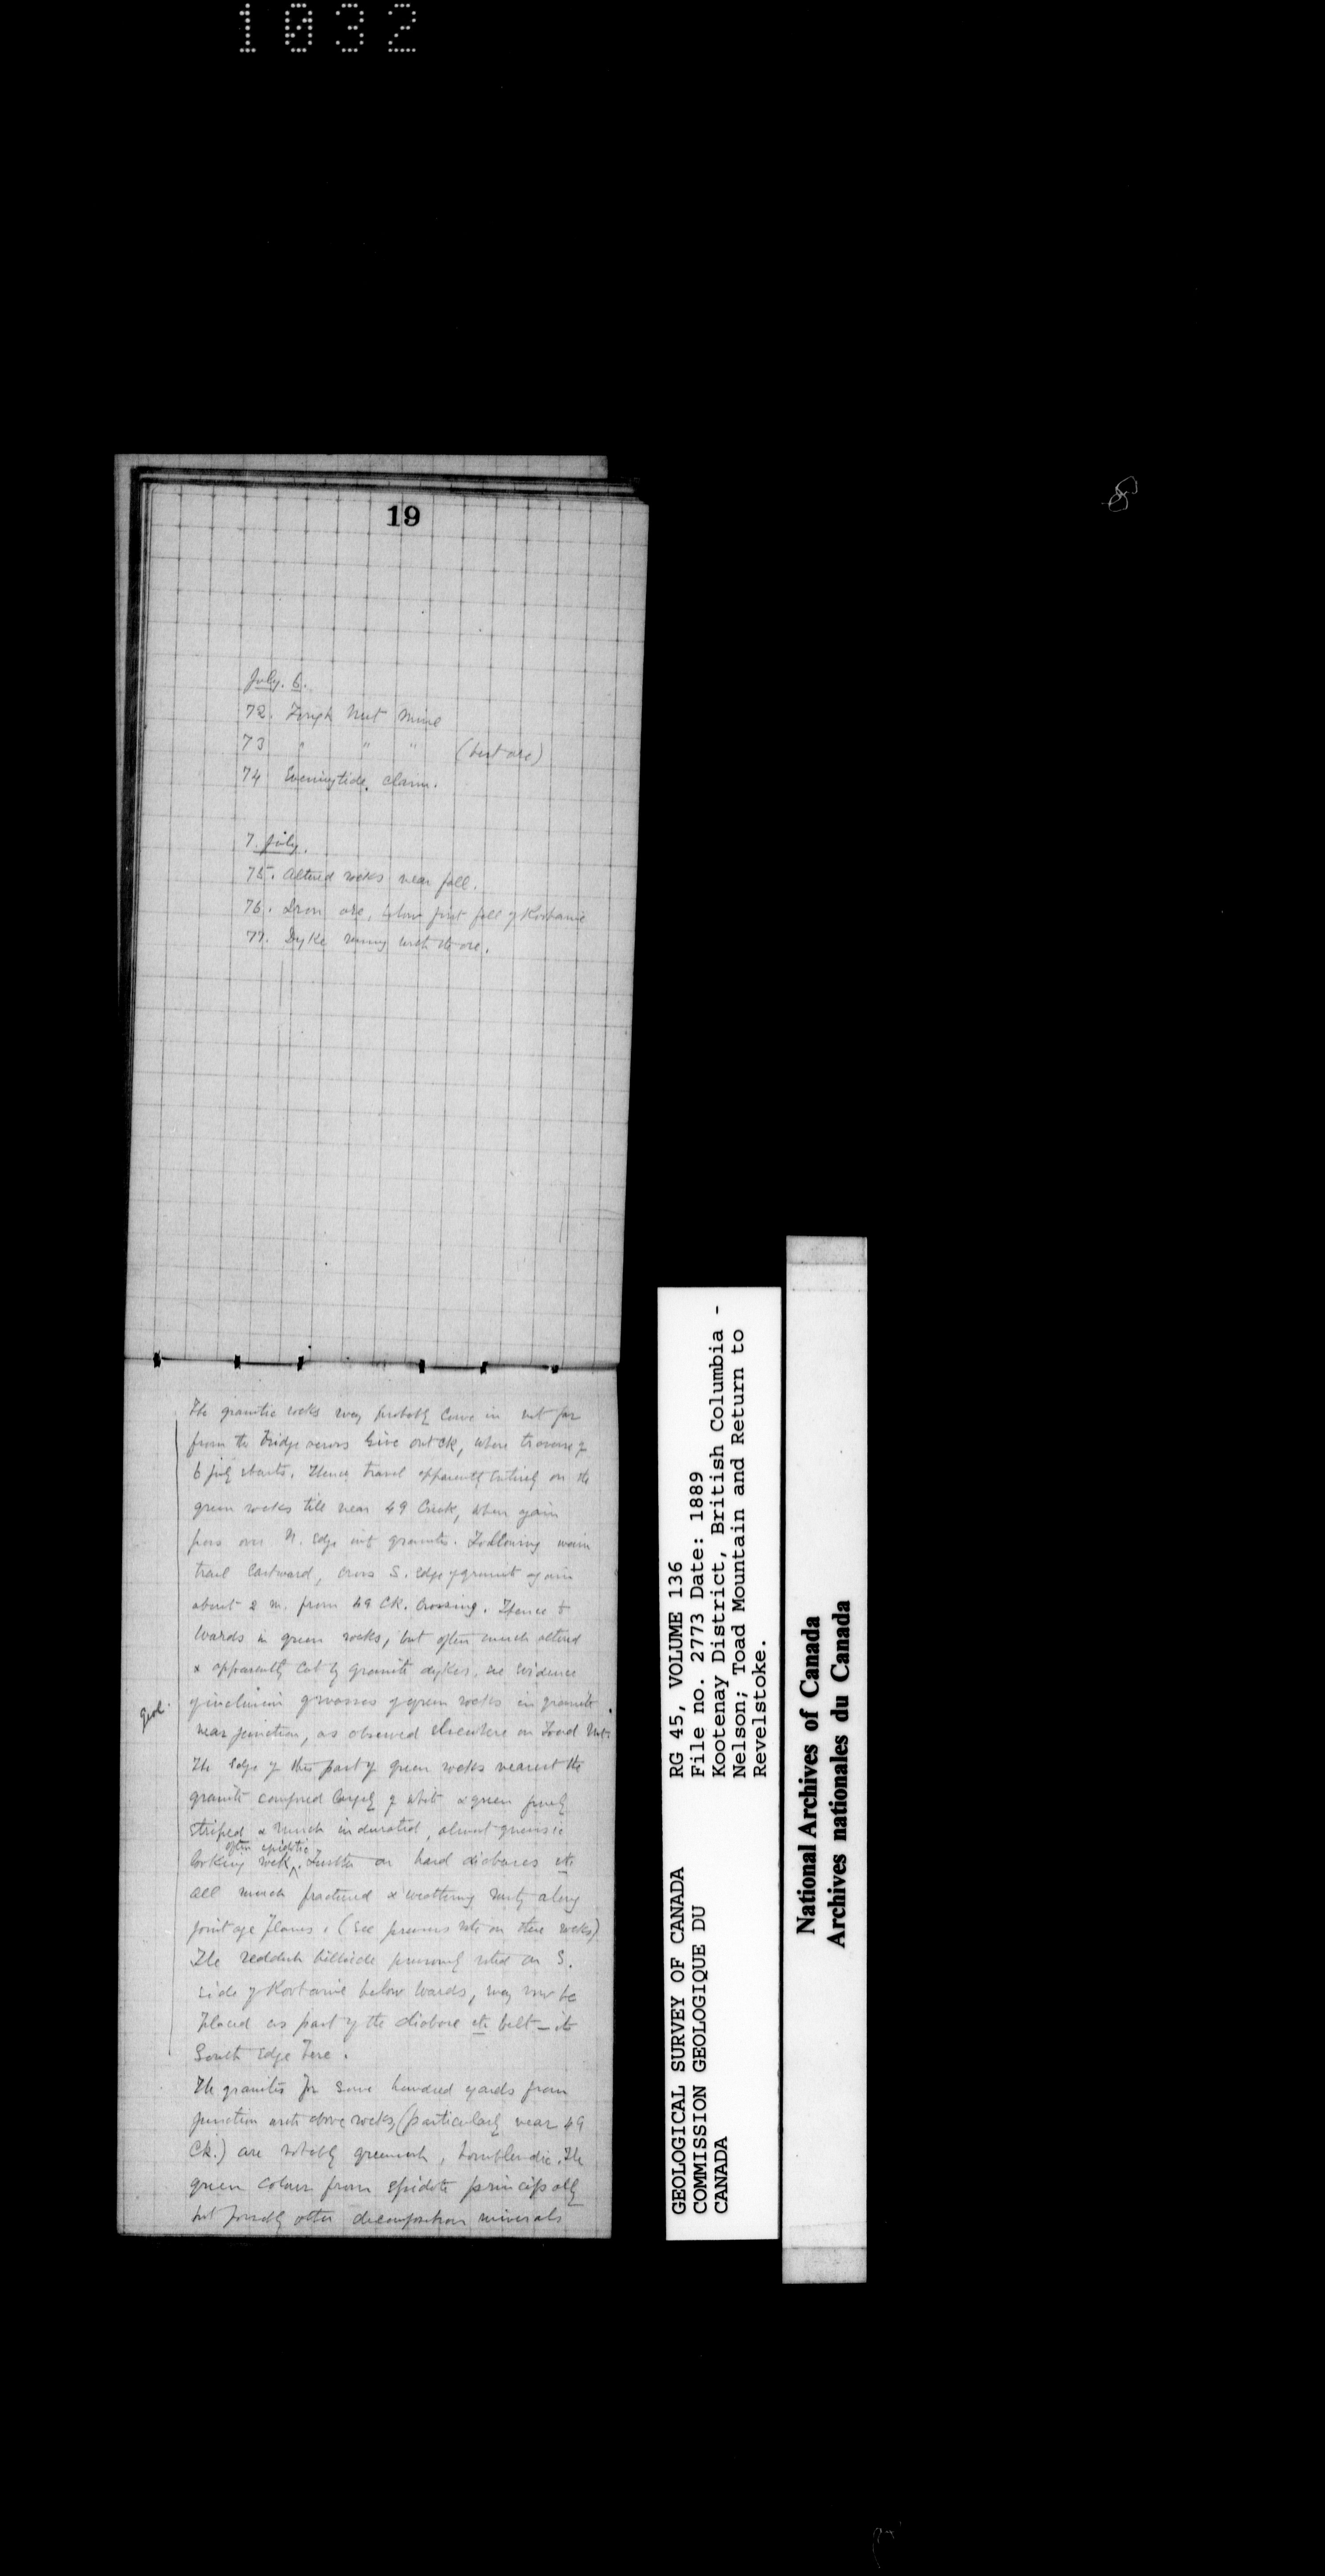 1032
19
July. 6.
72. Tough Nut Mine
73 " " " (best ore)
74 Eveningtide. claim.
7. July.
75. Altered rocks near fall.
76. Iron ore, below first fall of Kootanie
77. Dyke running with the ore.
The granitic rocks may probably come in not far
from the bridge across Give out Ck, where traverse of
6 July starts. Thence travel apparently entirely on the
green rocks till near 49 Creek, when again
pass over N. edge into granites. Following main
trail Eastward, cross S. edge of granite again
about 2 m. from 49 Ck. Crossing. Thence to
Wards in green rocks, but often much altered
& apparently cut by granite dykes, see evidence
of inclusion of masses of green rocks in granite
near junction, as observed elsewhere on Toad Mt.
Geol.
The edge of this part of green rocks nearest the
granite composed largely of white & green finely
striped & much indurated, almost gneissic
looking rock, often epidotic. Further on hard diabases etc
all much fractured & weathering rusty along
jointage planes. (See previous note on these rocks)
The reddish hillside previously noted on S.
side of Kootanie below Wards, may now be
placed as part of the diabase etc belt – its
South edge here.
The granites for some hundred yards from
junction with above rocks, (particularly near 49
Ck.) are notably greenish, hornblendic. The
green colour from epidote principally
but possibly other decomposition minerals
GEOLOGICAL SURVEY OF CANADA
COMMISSION GEOLOGIQUE DU
CANADA
RG 45, VOLUME 136
File no. 2773 Date: 1889
Kootenay District, British Columbia -
Nelson; Toad Mountain and Return to
Revelstoke.
National Archives of Canada
Archives nationales du Canada